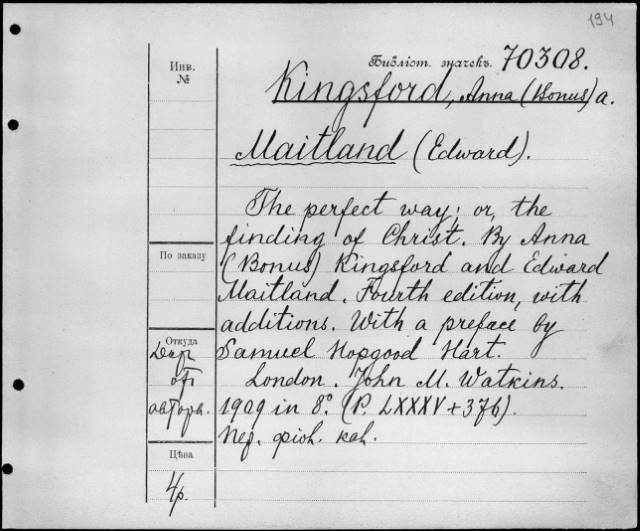 194
Инв.
№
Бібліот. значекъ 70308.
Kingsford, Anna (Bonus) a.
Maitland (Edward).
The perfect way; or, the
finding of Christ. By Anna
(Bonus) Kingsford and Edward
Maitland. Fourth edition, with
additions. With a preface by
Samuel Hopgood Hart.
London. John M. Watkins.
1909 in 8°. (P. LXXXV + 376).
По заказу
Откуда
Даръ
отъ
автора.
Цѣна
4р.